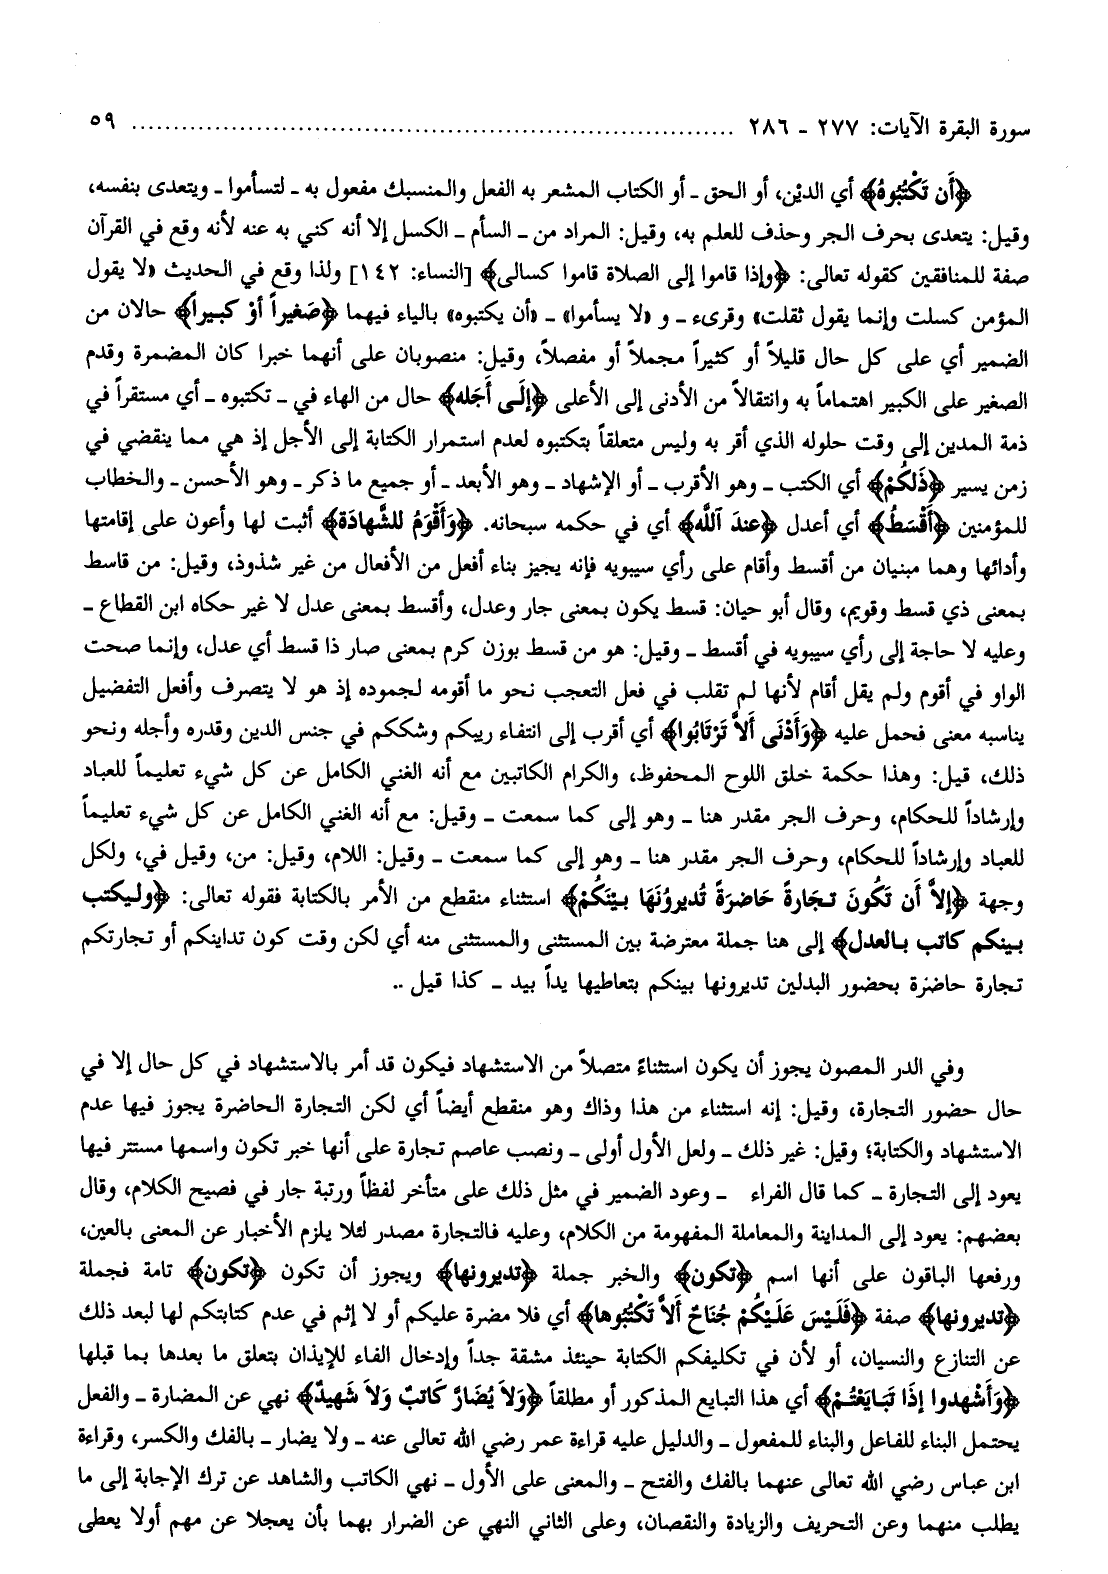 سورة البقرة الآيات: ٢٧٧ ـ ٢٨٦ ........................................................................ ٥٩
﴿أَن تَكْتُبُوهُ﴾ أي الديْن، أو الحق ـ أو الكتاب المشعر به الفعل والمنسبك مفعول به ـ لتسأموا ـ ويتعدى بنفسه،
وقيل: يتعدى بحرف الجر وحذف للعلم به، وقيل: المراد من ـ السأم ـ الكسل إلا أنه كني به عنه لأنه وقع في القرآن
صفة للمنافقين كقوله تعالى: ﴿وإذا قاموا إلى الصلاة قاموا كسالى﴾ [النساء: ١٤٢] ولذا وقع في الحديث «لا يقول
المؤمن كسلت وإنما يقول ثقلت» وقرىء ـ و «لا يسأموا» ـ «أن يكتبوه» بالياء فيهما ﴿صَغيراً أوْ كَبيراً﴾ حالان من
الضمير أي على كل حال قليلاً أو كثيراً مجملاً أو مفصلاً، وقيل: منصوبان على أنهما خبرا كان المضمرة وقدم
الصغير على الكبير اهتماماً به وانتقالاً من الأدنى إلى الأعلى ﴿إلَى أَجَله﴾ حال من الهاء في ـ تكتبوه ـ أي مستقراً في
ذمة المدين إلى وقت حلوله الذي أقر به وليس متعلقاً بتكتبوه لعدم استمرار الكتابة إلى الأجل إذ هي مما ينقضي في
زمن يسير ﴿ذَلكُمْ﴾ أي الكتب ـ وهو الأقرب ـ أو الإشهاد ـ وهو الأبعد ـ أو جميع ما ذكر ـ وهو الأحسن ـ والخطاب
للمؤمنين ﴿أَقْسَطُ﴾ أي أعدل ﴿عندَ اللَّه﴾ أي في حكمه سبحانه. ﴿وَأَقْوَمُ للشَّهادَة﴾ أثبت لها وأعون على إقامتها
وأدائها وهما مبنيان من أقسط وأقام على رأي سيبويه فإنه يجيز بناء أفعل من الأفعال من غير شذوذ، وقيل: من قاسط
بمعنى ذي قسط وقويم، وقال أبو حيان: قسط يكون بمعنى جار وعدل، وأقسط بمعنى عدل لا غير حكاه ابن القطاع ـ
وعليه لا حاجة إلى رأي سيبويه في أقسط ـ وقيل: هو من قسط بوزن كرم بمعنى صار ذا قسط أي عدل، وإنما صحت
الواو في أقوم ولم يقل أقام لأنها لم تقلب في فعل التعجب نحو ما أقومه لجموده إذ هو لا يتصرف وأفعل التفضيل
يناسبه معنى فحمل عليه ﴿وَأَدْنَى أَلاَّ تَرْتَابُوا﴾ أي أقرب إلى انتفاء ريبكم وشككم في جنس الدين وقدره وأجله ونحو
ذلك، قيل: وهذا حكمة خلق اللوح المحفوظ، والكرام الكاتبين مع أنه الغني الكامل عن كل شيء تعليماً للعباد
وإرشاداً للحكام، وحرف الجر مقدر هنا ـ وهو إلى كما سمعت ـ وقيل: مع أنه الغني الكامل عن كل شيء تعليماً
للعباد وإرشاداً للحكام، وحرف الجر مقدر هنا ـ وهو إلى كما سمعت ـ وقيل: اللام، وقيل: من، وقيل في، ولكل
وجهة ﴿إلاَّ أَن تَكُونَ تجَارَةً حَاضرَةً تُديروُنَهَا بيْنَكُمْ﴾ استثناء منقطع من الأمر بالكتابة فقوله تعالى: ﴿وليكتب
بينكم كاتب بالعدل﴾ إلى هنا جملة معترضة بين المستثنى والمستثنى منه أي لكن وقت كون تداينكم أو تجارتكم
تجارة حاضرة بحضور البدلين تديرونها بينكم بتعاطيها يداً بيد ـ كذا قيل ..
وفي الدر المصون يجوز أن يكون استثناءً متصلاً من الاستشهاد فيكون قد أمر بالاستشهاد في كل حال إلا في
حال حضور التجارة، وقيل: إنه استثناء من هذا وذاك وهو منقطع أيضاً أي لكن التجارة الحاضرة يجوز فيها عدم
الاستشهاد والكتابة؛ وقيل: غير ذلك ـ ولعل الأول أولى ـ ونصب عاصم تجارة على أنها خبر تكون واسمها مستتر فيها
يعود إلى التجارة ـ كما قال الفراء ـ وعود الضمير في مثل ذلك على متأخر لفظاً ورتبة جار في فصيح الكلام، وقال
بعضهم: يعود إلى المداينة والمعاملة المفهومة من الكلام، وعليه فالتجارة مصدر لئلا يلزم الأخبار عن المعنى بالعين،
ورفعها الباقون على أنها اسم ﴿تكون﴾ والخبر جملة ﴿تديرونها﴾ ويجوز أن تكون ﴿تكون﴾ تامة فجملة
﴿تديرونها﴾ صفة ﴿فَلَيْسَ عَلَيْكُمْ جُنَاحٌ أَلاَّ تَكْتُبُوها﴾ أي فلا مضرة عليكم أو لا إثم في عدم كتابتكم لها لبعد ذلك
عن التنازع والنسيان، أو لأن في تكليفكم الكتابة حينئذ مشقة جداً وإدخال الفاء للإيذان بتعلق ما بعدها بما قبلها
﴿وَأَشْهدوا إذَا تَبَايَعْتُمْ﴾ أي هذا التبايع المذكور أو مطلقاً ﴿وَلاَ يُضَارَّ كَاتبٌ وَلاَ شَهيدٌ﴾ نهي عن المضارة ـ والفعل
يحتمل البناء للفاعل والبناء للمفعول ـ والدليل عليه قراءة عمر رضي الله تعالى عنه ـ ولا يضار ـ بالفك والكسر، وقراءة
ابن عباس رضي الله تعالى عنهما بالفك والفتح ـ والمعنى على الأول ـ نهي الكاتب والشاهد عن ترك الإجابة إلى ما
يطلب منهما وعن التحريف والزيادة والنقصان، وعلى الثاني النهي عن الضرار بهما بأن يعجلا عن مهم أولا يعطى